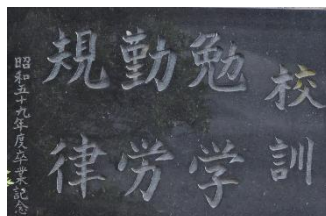 校訓
勉学
勤労
規律
昭和五十九年度卒業記念